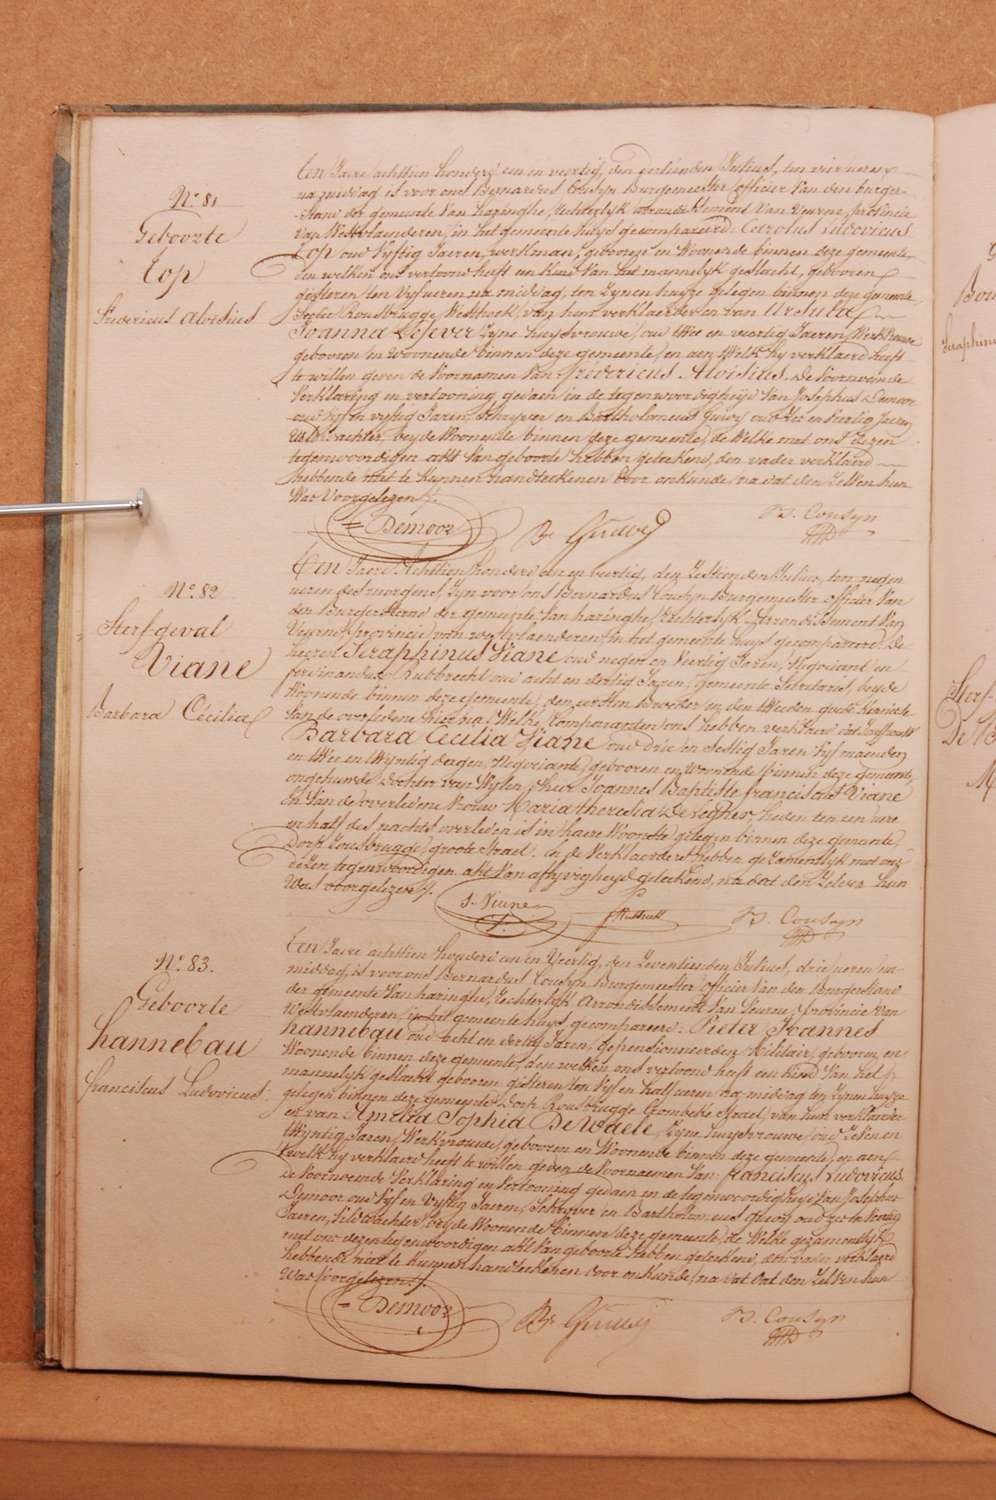 N.º 81
Geboorte
Top
Fredericus Aloisius
Een Jaere achttien honderd een en veertig, den zestienden Julius, ten vier uren
na middag is voor ons Bernardus Cousyn Burgemeester officier van den burger-
-stand der gemeente van haringhe, Rechterlyk arrondissement van Veurne provincie
van Westvlaenderen, in het gemeente huys gecompareerd: Carolus Ludovicus
Top oud vyftig Jaeren, werkman, gebooren en Woonende binnen deze gemeente,
den welken ons vertoond heeft een kind van het mannelyk geslacht, gebooren
gisteren ten vyf ueren na middag, ten zynen huyze gelegen binnen deze gemeente
Sectie Rousbrugge Westhoek, van hem verklaerder en van Ursula
Joanna Lefever Zyne huysvrouwe, oud twee en veertig Jaeren, Werkvrouw
gebooren en woonende binnen deze gemeente, en aen Welk hy verklaerd heeft
te willen geven de Voornamen van Fredericus Aloisius. De Voornoemde
Verklaring en vertooning gedaen in de tegenwoordigheyd van Josephus Demoor
oud vyf en vyftig Jaeren, schryver en Bartholomeus Guwy oud zes en veertig Jaeren
Veldwachter, beyde Woonende binnen deze gemeente, de Welke met ons dezen
tegenwoordigen akt van geboorte hebben geteekend, den vader verklaerd
hebbende niet te kunnen handteekenen door onkunde, na dat den zelven hun
Was Voorgelezen.
Demoor B. Guwy B. Cousyn
N.º 82
Sterf-geval
Viane
Barbara Cecilia
Een Jaere Achttien honderd een en veertig, den zestienden Julius, ten negen
ueren des morgens, Zyn voor ons Bernardus Cousyn Burgemeester officier van
den Burgerstand der gemeente van haringhe, Rechterlyk Arrondissement van
Veurne, provincie van westvlaenderen, in het gemeente huys gecompareerd: De
heeren Seraphinus Viane oud negen en Veertig Jaren, Negociant en
ferdinandus Rubbrecht oud acht en dertig Jaren, gemeente Secretaris, beyde
Woonende binnen deze gemeente, den eersten Broeder en den tweeden goede Kennisse
van de overledene hierna, Welke Comparanten ons hebben verklaerd dat Jouffrouw
Barbara Cecilia Viane oud drie en sestig Jaren vyf maenden
en twee en twyntig dagen, Negociante, gebooren en Woonende binnen deze gemeente,
ongehuwde dochter van Wylen d'heer Joannes Baptiste franciscus Viane
en van de overledene Vrouw Maria theresia De Legher, heden ten een uere
en half des nachts overleden is in haere Woonste gelegen binnen deze gemeente,
Dorp Rousbrugge, groote Straet. En de Verklaerders hebben gezamentlyk met ons
dezen tegenwoordigen akt van aflyvigheyd geteekend, na dat den Zelven hun
Was voorgelezen.
S. Viane B. Cousyn
N.º 83.
Geboorte
hannebau
franciscus Ludovicus.
Een Jaere achttien honderd een en Veertig, den zeventienden Julius, drie ueren na-
middag, is voor ons Bernardus Cousyn Burgemeester officier Van den Burgerstand
der gemeente van haringhe, Rechterlyk Arrondissement van Veurne, provincie van
Westvlaenderen, in het gemeente huys gecompareerd: Pieter Joannes
hannebau oud acht en dertig Jaren, gepensionneerden Militair, gebooren en
Woonende binnen deze gemeente, den welken ons vertoond heeft een kind van het
mannelyk geslacht gebooren gisteren ten vyf en half ueren na middag ten zynen huyze
gelegen binnen deze gemeente Dorp Rousbrugge Crombeke Straet, van hem verklaerder
en van Amelia Sophia DeWaele, Zyne huysvrouwe, oud Zeven en
twyntig Jaren, Werkvrouwe, gebooren en Woonende binnen deze gemeente, en aen
Welk hy verklaerd heeft te willen geven de Voornaemen Van franciscus Ludovicus.
De Voornoemde Verklaering en vertooning gedaen in de tegenwoordigheyd Van Josephus
Demoor oud vyf en Vyftig Jaeren, Schryver en Bartholomeus Guwy oud zes en Veertig
Jaeren, Veldwachter, beyde Woonende binnen deze gemeente, de Welke gezamentlyk
met ons dezen tegenwoordigen akt van geboorte hebben geteekend, den vader verklaerd
hebbende niet te kunnen handteekenen door onkunde, na dat den Zelven hun
Was Voorgelezen.
Demoor B. Guwy B. Cousyn